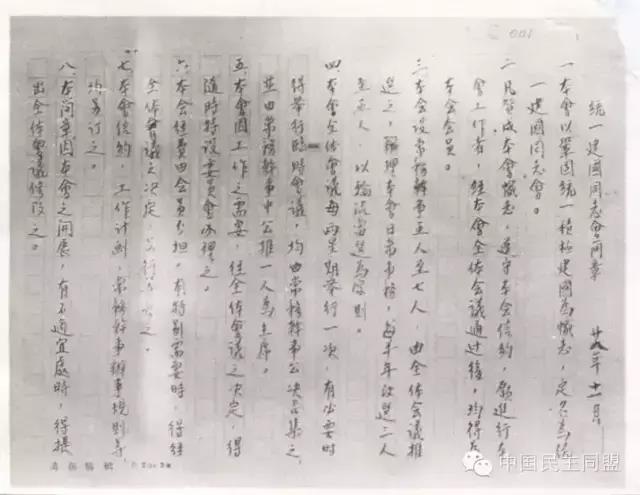 001
統一建國同志會簡章 廿八年十一月
一 本會以鞏固統一積極建國為幟志,定名為統
一建國同志會。
二 凡贊成本會幟志,遵守本會信約,願進行本
會工作者,經本會全体會議通過後,均得為
本會會員。
三 本会設常務幹事五人至七人,由全体會議推
選之,辦理本會日常事務,每半年改選二人
至三人,以輪流當選為原則。
四 本會全体會議每兩星期舉行一次,有必要時
得舉行臨時會議,均由常務幹事公決召集之,
並由常務幹事中公推一人為主席。
五 本會因工作之需要 經全体會議之決定,得
隨時特設委員會办理之。
六 本会經費由会員分担,有特別需要時,得經
全体會議之決定,另行
之。
七 本會信約,工作計劃,常務幹事辦事規則等,
均另訂之。
八 本簡章因本會之開展,有不適宜處時,得提
出全体會議修改之。
中国民主同盟